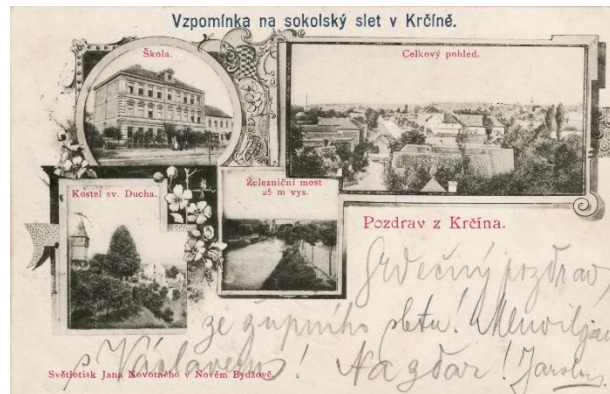 Vzpomínka na sokolský slet v Krčíně.
Škola.
Celkový pohled.
Kostel sv. Ducha.
Železniční most
25 m vys.
Pozdrav z Krčína.
Srdečný pozdrav
ze župního sletu!
s Václavem! Na zdar!
Světlotisk Jana Novotného v Novém Bydžově.